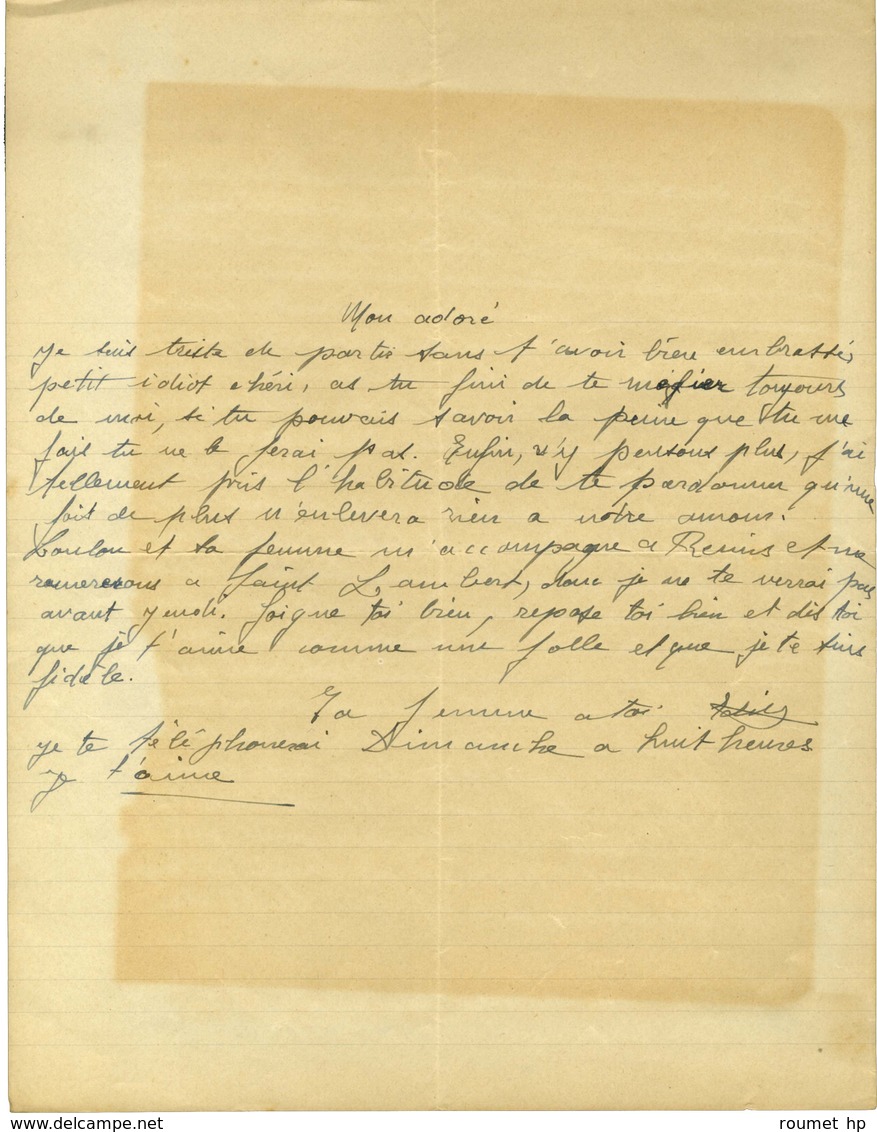 Mon adoré
Je suis triste de partir sans t'avoir bien embrassé,
petit idiot chéri, as tu fini de te mefier toujours
de moi, si tu pouvais savoir la peine que tu me
fais tu ne le ferai pas. Enfin, n'y pensons plus, j'ai
tellement pris l'habitude de te pardonner qu'une
fois de plus n'enlevera rien a notre amour.
Loulou et sa femme m'accompagne a Reims et me
a Saint Lambert, donc je ne te verrai pas
avant jeudi. Soigne toi bien, repose toi bien et dis toi
que je t'aime comme une folle et que je te suis
fidèle.
Ta femme a toi
je te téléphonerai Dimanche a huit heures
Je t'aime
delcampe.net
roumet hp